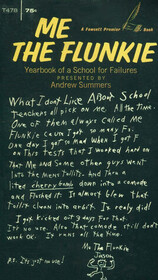 T470
75c
A Fawcett Premier Book
ME
THE FLUNKIE
Yearbook of a School for Failures
PRESENTED BY
Andrew Summers
What I Dont Like About School
Teachers all pick on me. All the time.
One of them always called me
Flunkie cause I got so many Fs.
One day I got so mad when I got F
on this test that I worked hard on
that Me And Some other guys went
into the Mens toilits. And then a
lited cherry bomb down into a comode
and Flushed it. It almost blew that
toilit clean into orbit. It realy did!
I got kicked out 3 days For that.
It's no use. Also that comode still dont
work OK. It runs all the time.
Me The Flunkie
Jason
P.S. It's just no use!